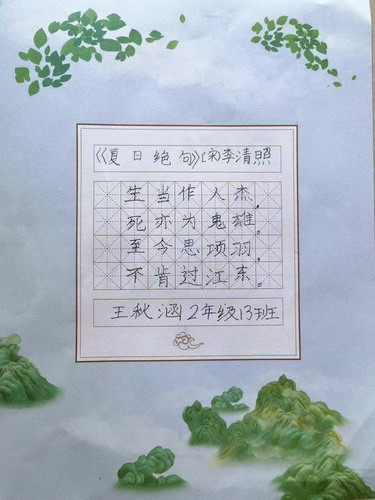 《夏日绝句》[宋]李清照
生当作人杰,
死亦为鬼雄。
至今思项羽,
不肯过江东。
王秋涵2年级13班